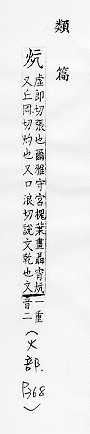 類篇
炕
虛郎切張也爾雅守宮槐葉晝聶宵炕
又丘岡切灼也又口浪切說文乾也文
一重
音二
(火部. P368)